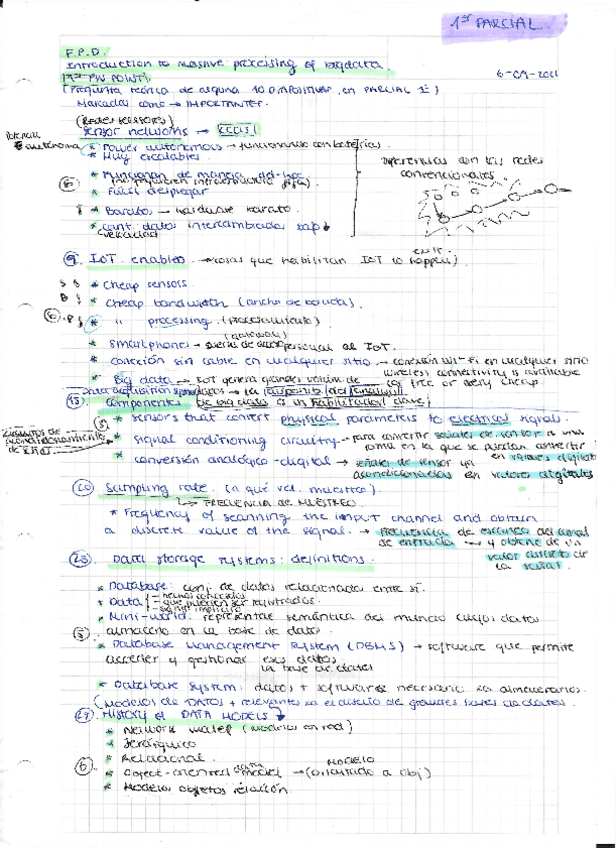 1er PARCIAL
F.P.D.
Introduction to massive processing of bigdata.
6-09-2021
1er PW POINT:
(Pregunta teórica de alguna 10 DIAPOSITIVAS en PARCIAL 1º)
Marcadas como → IMPORTANTES.
(Redes sensores)
Sensor networks →
* Power autonomous → funcionando con baterías
* Muy escalables.
* Funcionan de manera ad-hoc
* Fácil desplegar
* Baratos → hardware barato.
* Cant. datos intercambiados baja
velocidad
Diferencias con las redes
convencionales.
IoT enables → cosas que habilitan IoT to happen)
* Cheap sensors
* Cheap bandwidth (ancho de banda).
* " processing (procesamiento)
(gateway)
* Smartphones → personal al IoT.
* Conexión sin cable en cualquier sitio → conexión Wi-Fi en cualquier sitio
wireless connectivity is available
for free or very cheap.
* Big data → IoT genera grandes volumen de
Componentes
* Sensors that convert physical parameters to electrical signals.
* Signal conditioning circuitry → para convertir señales de sensor a una
forma en la que se puedan convertir
en valores digitales
* Conversión analógico-digital → señales de sensor ya
acondicionadas en valores digitales
(20) Sampling rate. (a qué vel. muestreo).
↳ FRECUENCIA DE MUESTREO
* Frequency of scanning the input channel and obtain
a discrete value of the signal. → frecuencia de escaneo del canal
de entrada y obtiene de un
valor discreto de
la señal.
(23) Data storage systems: definitions.
* Database: conj. de datos relacionados entre sí.
* Data
- hechos conocidos
- que merecen ser registrados.
- significado implícito
* Mini-world: representa semántica del mundo cuyos datos
almaceno en la base de datos.
* Database Management System (DBMS) → software que permite
acceder y gestionar esos datos
en base de datos
* Database system: datos + software necesario xa almacenarlos.
(Modelos de DATOS + relevantes xa el diseño de grandes bases de datos.
(27) History of DATA MODELS
* Network model (modelos en red)
* Jerárquico
* Relacional.
* Object-oriented data model → MODELO (orientado a obj)
* Modelos objetos relación